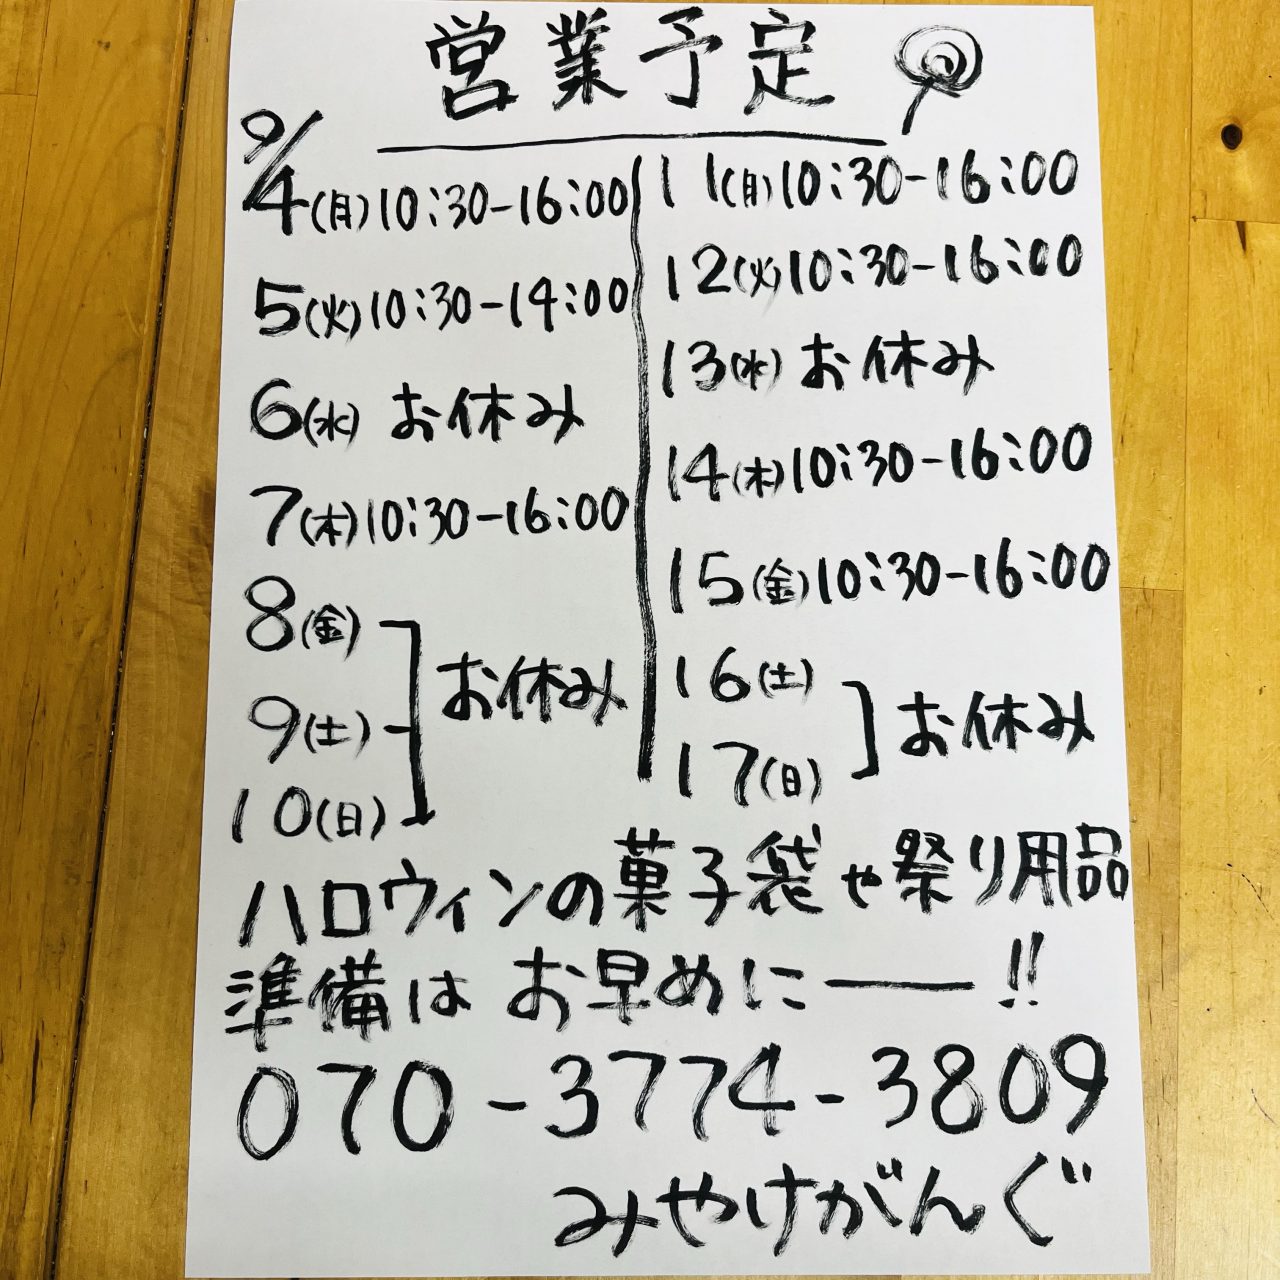 営業予定
9/4(月)10:30-16:00
5(火)10:30-14:00
6(水) お休み
7(木)10:30-16:00
8(金)
9(土)
10(日)
お休み
11(月)10:30-16:00
12(火)10:30-16:00
13(水) お休み
14(木)10:30-16:00
15(金)10:30-16:00
16(土)
17(日)
お休み
ハロウィンの菓子袋や祭り用品
準備は お早めにー!!
070-3774-3809
みやけがんぐ